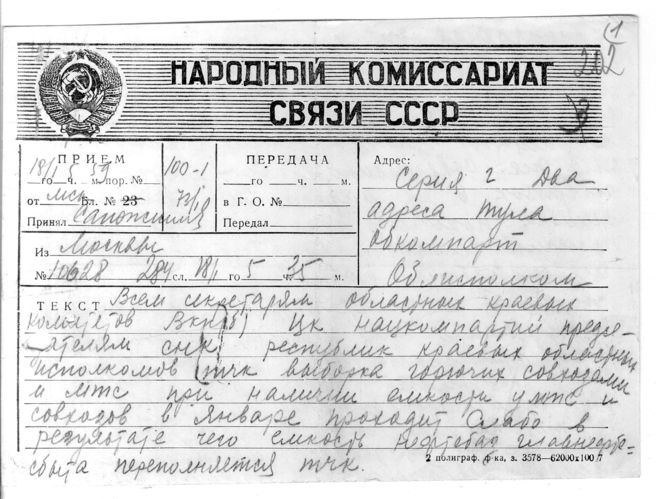 (1
202
НАРОДНЫЙ КОМИССАРИАТ
СВЯЗИ СССР
ПРИЕМ
18/1 5 59
го ч. м. пор. №
100-1
от мск бл. № 23
73/10
Принял
ПЕРЕДАЧА
го ч. м.
в Г. О. №
Передал
Адрес:
Серия г два
адреса тула
обкомпарт
Облисполком
Из Москвы
№ 10628 284 сл. 18/1 го 5 ч. 35 м.
ТЕКСТ Всем секретарям областных краевых
комитетов Вкп(б) Цк нацкомпартий предсе-
ателям снк республик краевых областных
исполкомов тчк выборка горючих совхозами
и мтс при наличии емкости у мтс и
совхозов в Январе проходит Слабо в
результате чего емкость нефтебаз главнефте-
сбыта переполняется тчк.
2 полиграф. ф-ка, з. 3578—62000х100/7